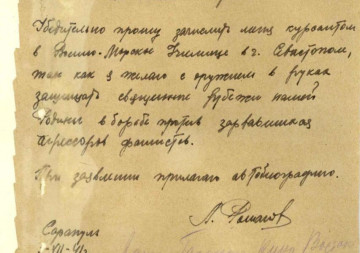 Убедительно прошу зачислить меня курсантом
в Военно-Морское Училище в г. Севастополь,
так как я желаю с оружием в руках
защищать священные рубежи нашей
Родины в борьбе против зарвавшихся
агрессоров фашистов.
При заявлении прилагаю автобиографию.
Сарапул